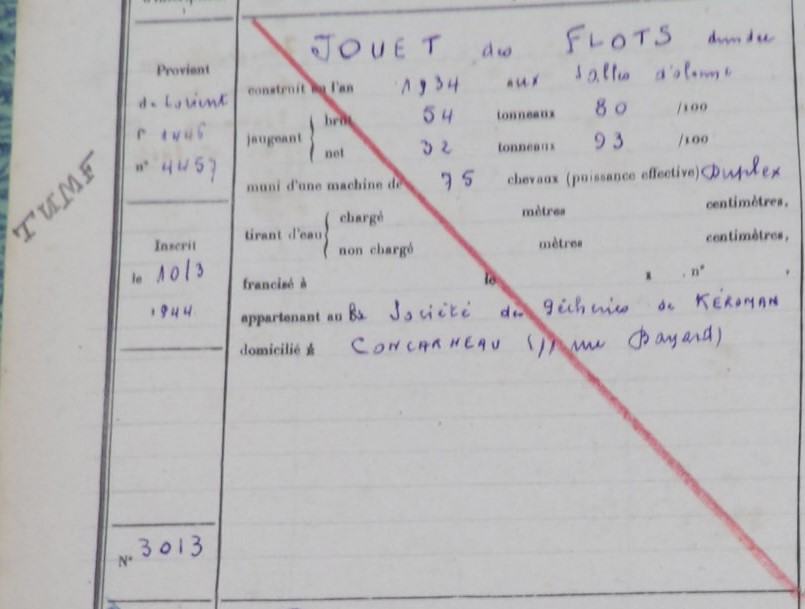 TUMF
Provient
de Lorient
f° 1446
n° 4457
Inscrit
le 10/3
1944
N° 3013
JOUET des FLOTS dundee
construit en l'an 1934 aux Salles d'olonne
jaugeant { brut 54 tonneaux 80 /100
net 32 tonneaux 93 /100
muni d'une machine de 75 chevaux (puissance effective) Duplex
tirant d'eau { chargé mètres centimètres,
non chargé mètres centimètres,
francisé à le , n° ,
appartenant au Société des Pêcheries de KÉROMAN
domicilié à CONCARNEAU ( rue Bayard)